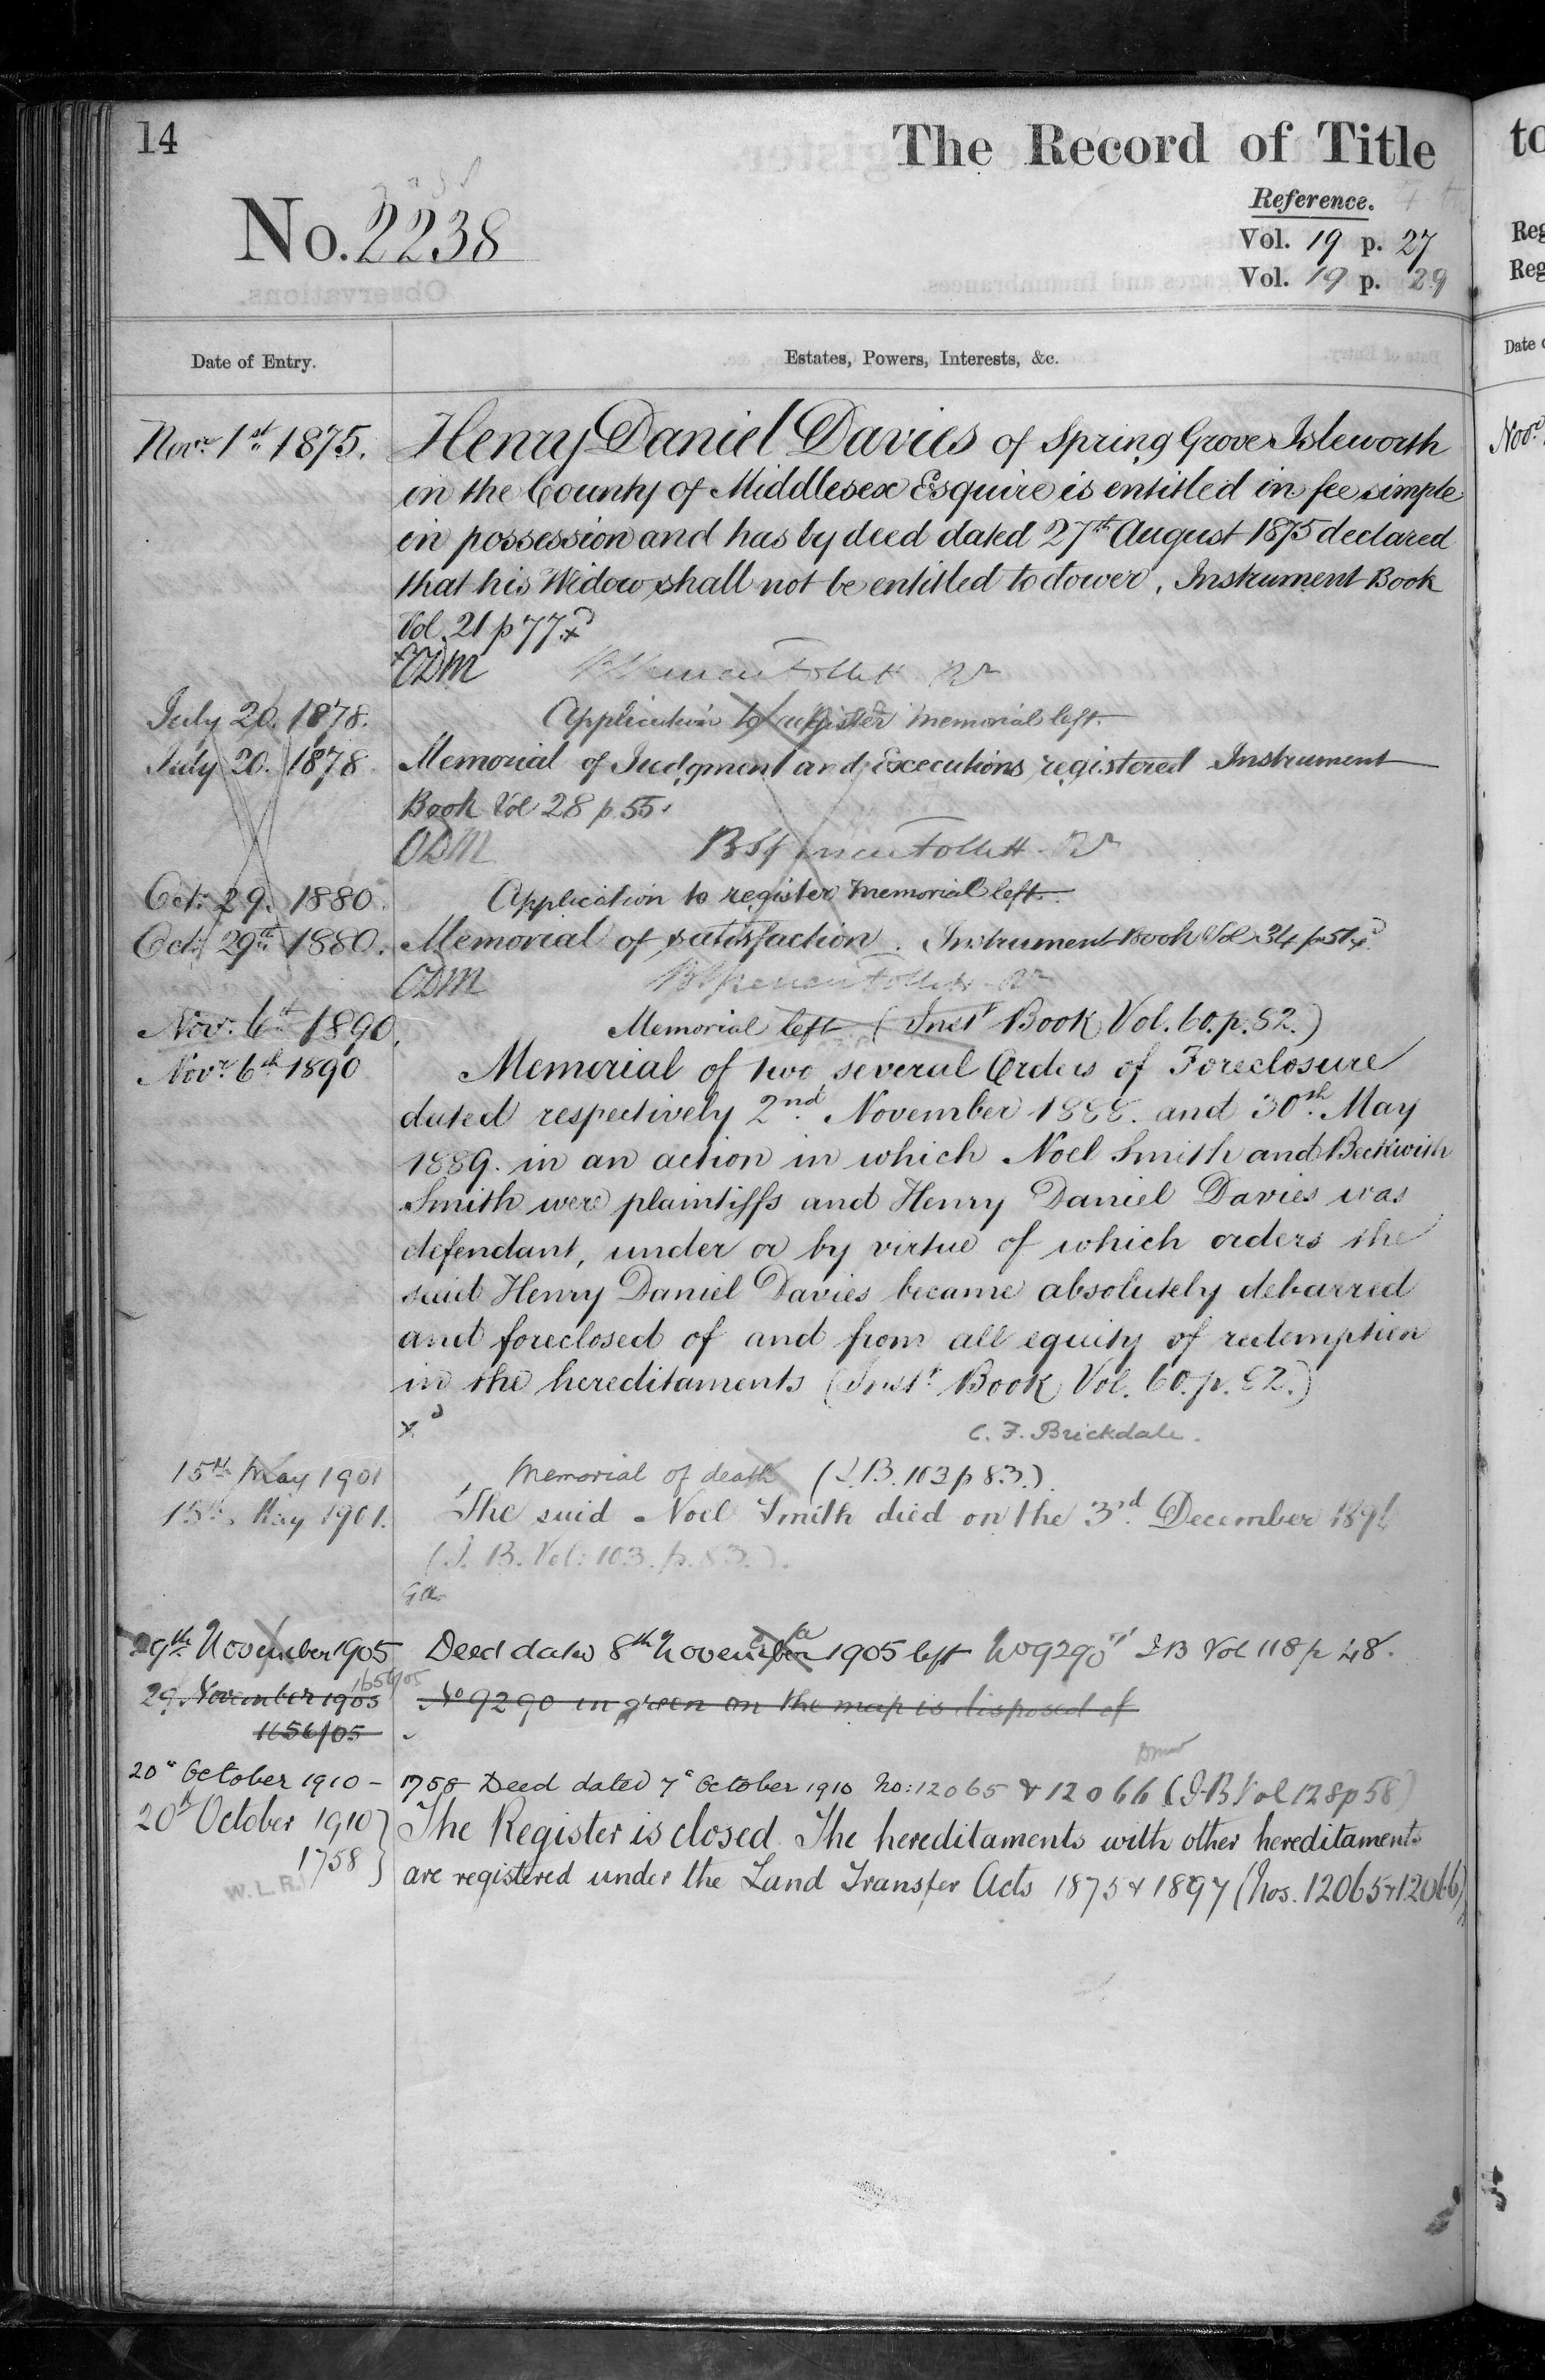 14
The Record of Title
No. 2238
Reference.
Vol. 19 p. 27
Vol. 19 p. 29
Date of Entry.
Estates, Powers, Interests, &c.
Novr. 1st 1875. Henry Daniel Davies of Spring Grove Isleworth
in the County of Middlesex Esquire is entitled in fee simple
in possession and has by deed dated 27th August 1875 declared
that his Widow shall not be entitled to dower. Instrument Book
Vol. 21 p 77.
ODM
July 20. 1878. Application to register memorial left.
July 20. 1878 Memorial of Judgment and Executions registered Instrument
Book Vol 28 p. 55.
ODM Follett
Oct: 29. 1880. Application to register memorial left.
Oct: 29th 1880. Memorial of satisfaction. Instrument Book Vol 34 p. 51
ODM
Nov. 6th 1890. Memorial left (Inst Book Vol. 60. p. 82.)
Novr. 6th 1890 Memorial of two several Orders of Foreclosure
dated respectively 2nd November 1888. and 30th May
1889. in an action in which Noel Smith and Beckwith
Smith were plaintiffs and Henry Daniel Davies was
defendant, under or by virtue of which orders the
said Henry Daniel Davies became absolutely debarred
and foreclosed of and from all equity of redemption
in the hereditaments (Inst. Book Vol. 60. p. 82.)
C. F. Brickdale.
15th May 1901 Memorial of death (I.B. 103 p 83.)
15th May 1901. The said Noel Smith died on the 3rd December
(I. B. Vol: 103. p. 83.).
Ga
29th November 1905 Deed dated 8th November 1905 left No 9290 I B Vol 118 p 48.
29. November 1905 1656/05 No 9290 in green on the map is disposed of
1656/05
20th October 1910 - 1758 Deed dated 7th October 1910 No: 12065 & 12066 (I.B Vol 128 p 58)
20th October 1910 } The Register is closed. The hereditaments with other hereditaments
1758 } are registered under the Land Transfer Acts 1875 & 1897 (Nos. 12065 & 12066)
W. L. R.
to
Reg
Reg
Date
Nov.